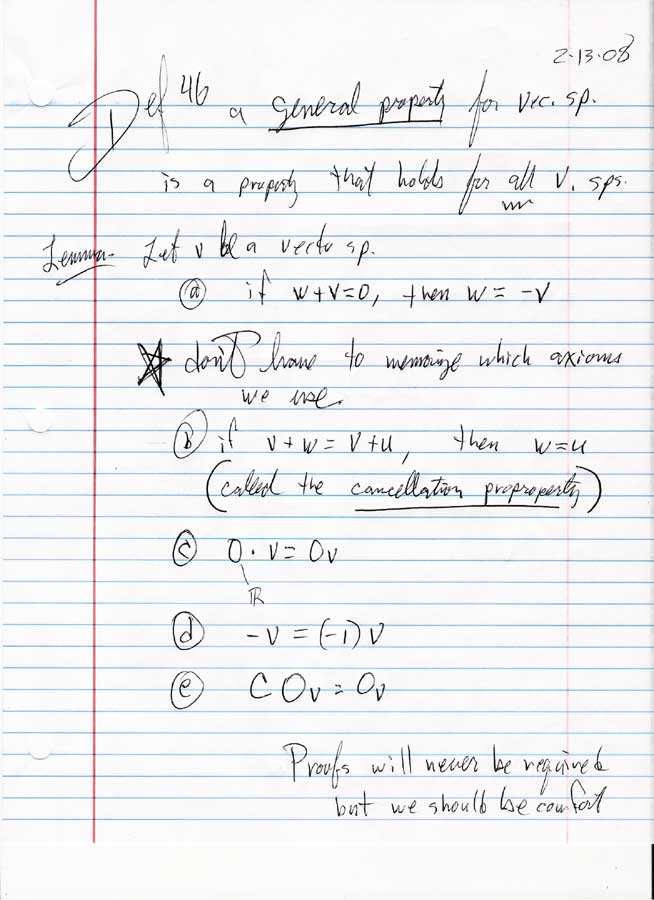 2-13-08
Def 46 a general property for vec. sp.
is a property that holds for all v. sps.
Lemma- Let v be a vecto sp.
(a) if w+v=0, then w = -v
☆ don't have to memorize which axioms
we use.
(b) if v+w = v+u, then w=u
(called the cancellation proproperty)
(c) 0·v = 0v
ℝ
(d) -v = (-1)v
(e) C 0v = 0v
Proofs will never be required
but we should be comfort